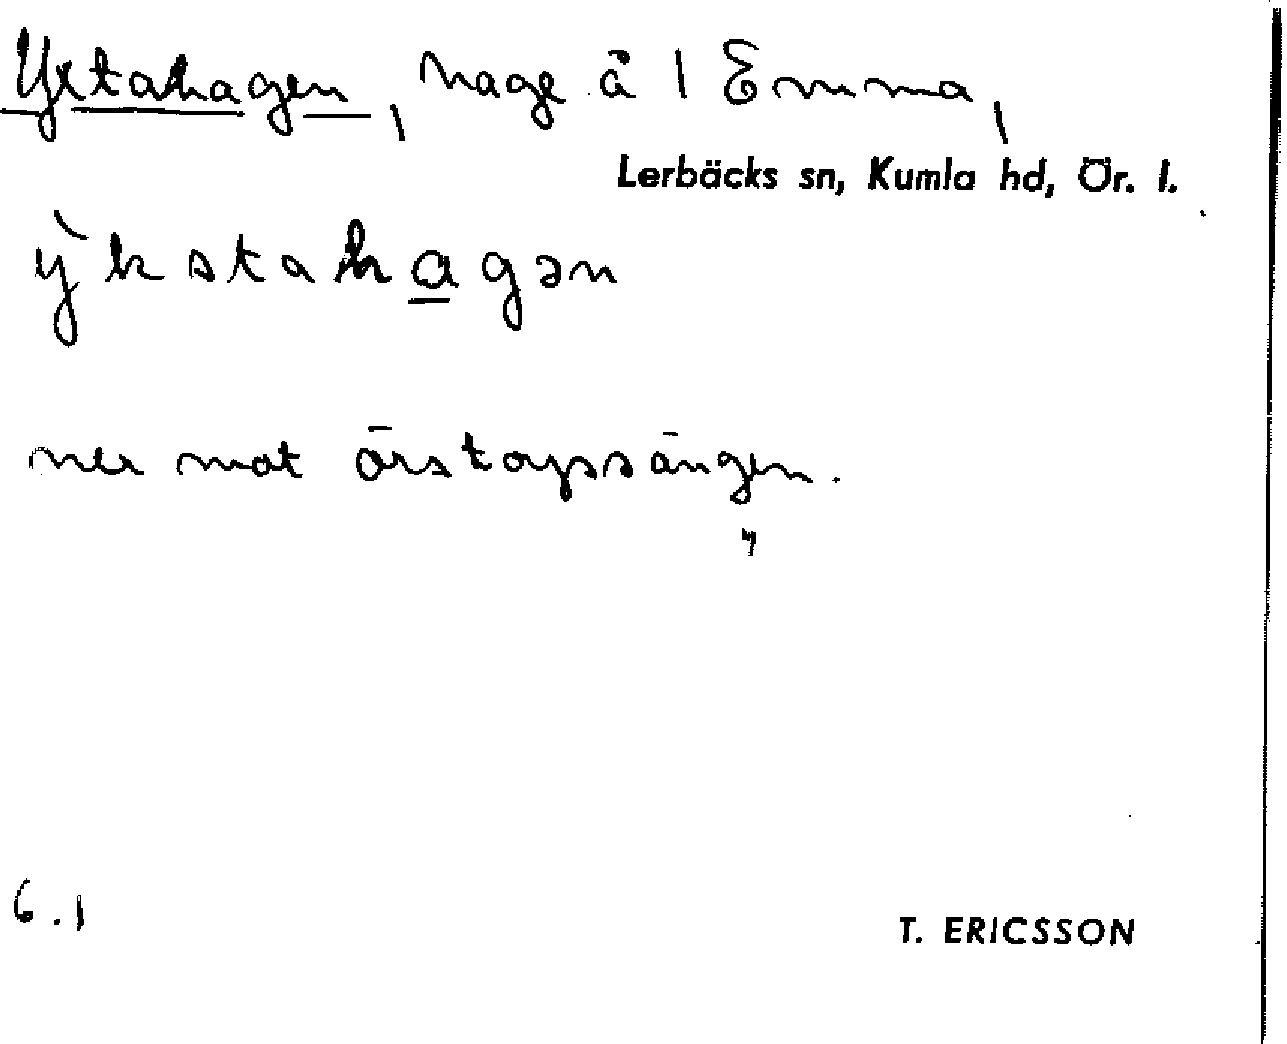 Yxtahagen, hage å 1 Emma,
Lerbäcks sn, Kumla hd, Ör. l.
ỳkstahagən
ner mot
6.1
T. ERICSSON